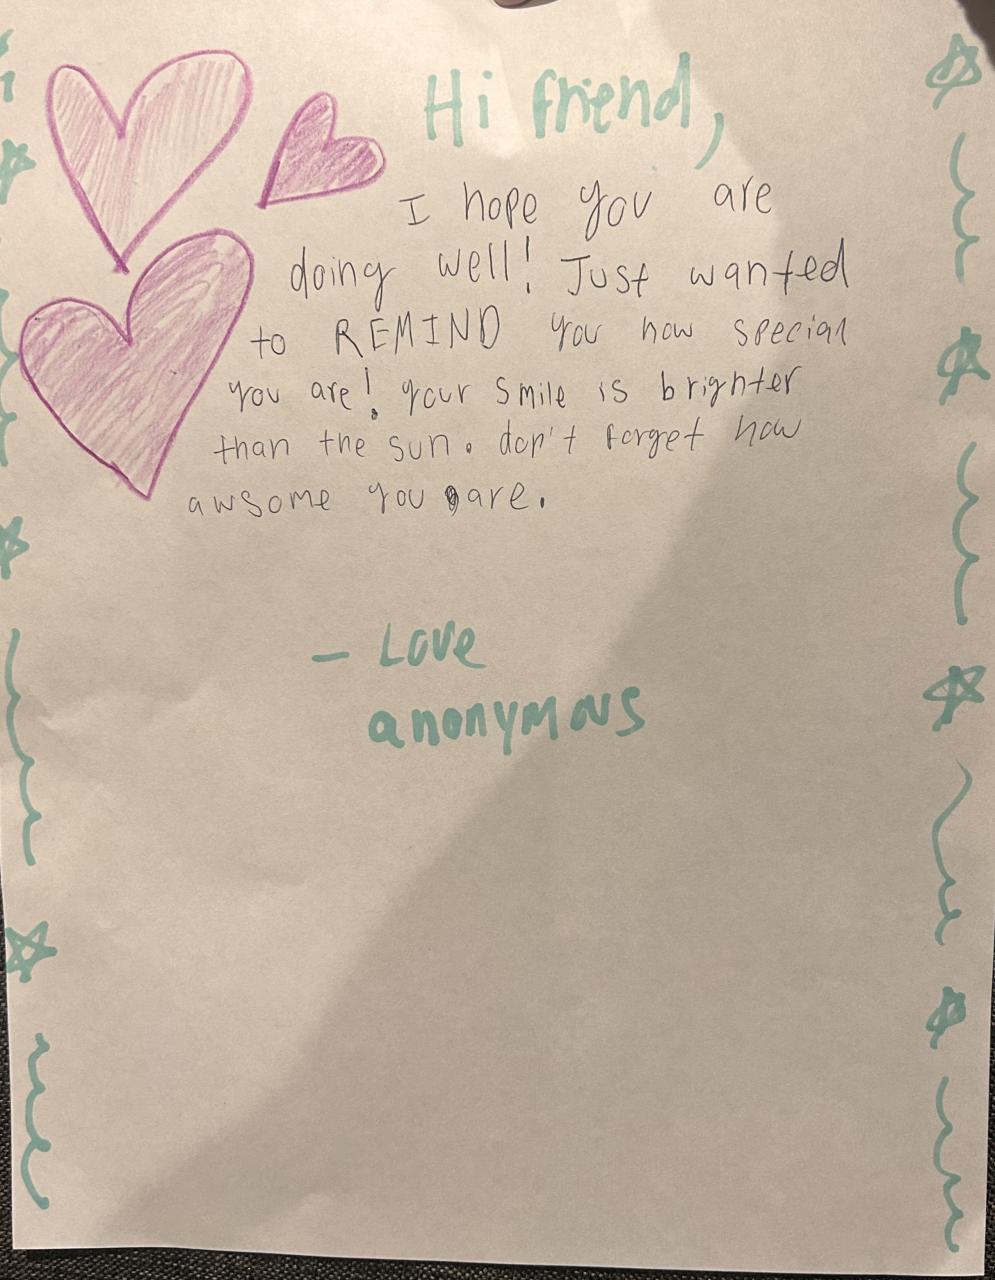 Hi friend,
I hope you are
doing well! Just wanted
to REMIND you how special
you are! your smile is brighter
than the sun. don't forget how
awsome you are.
- Love
anonymous